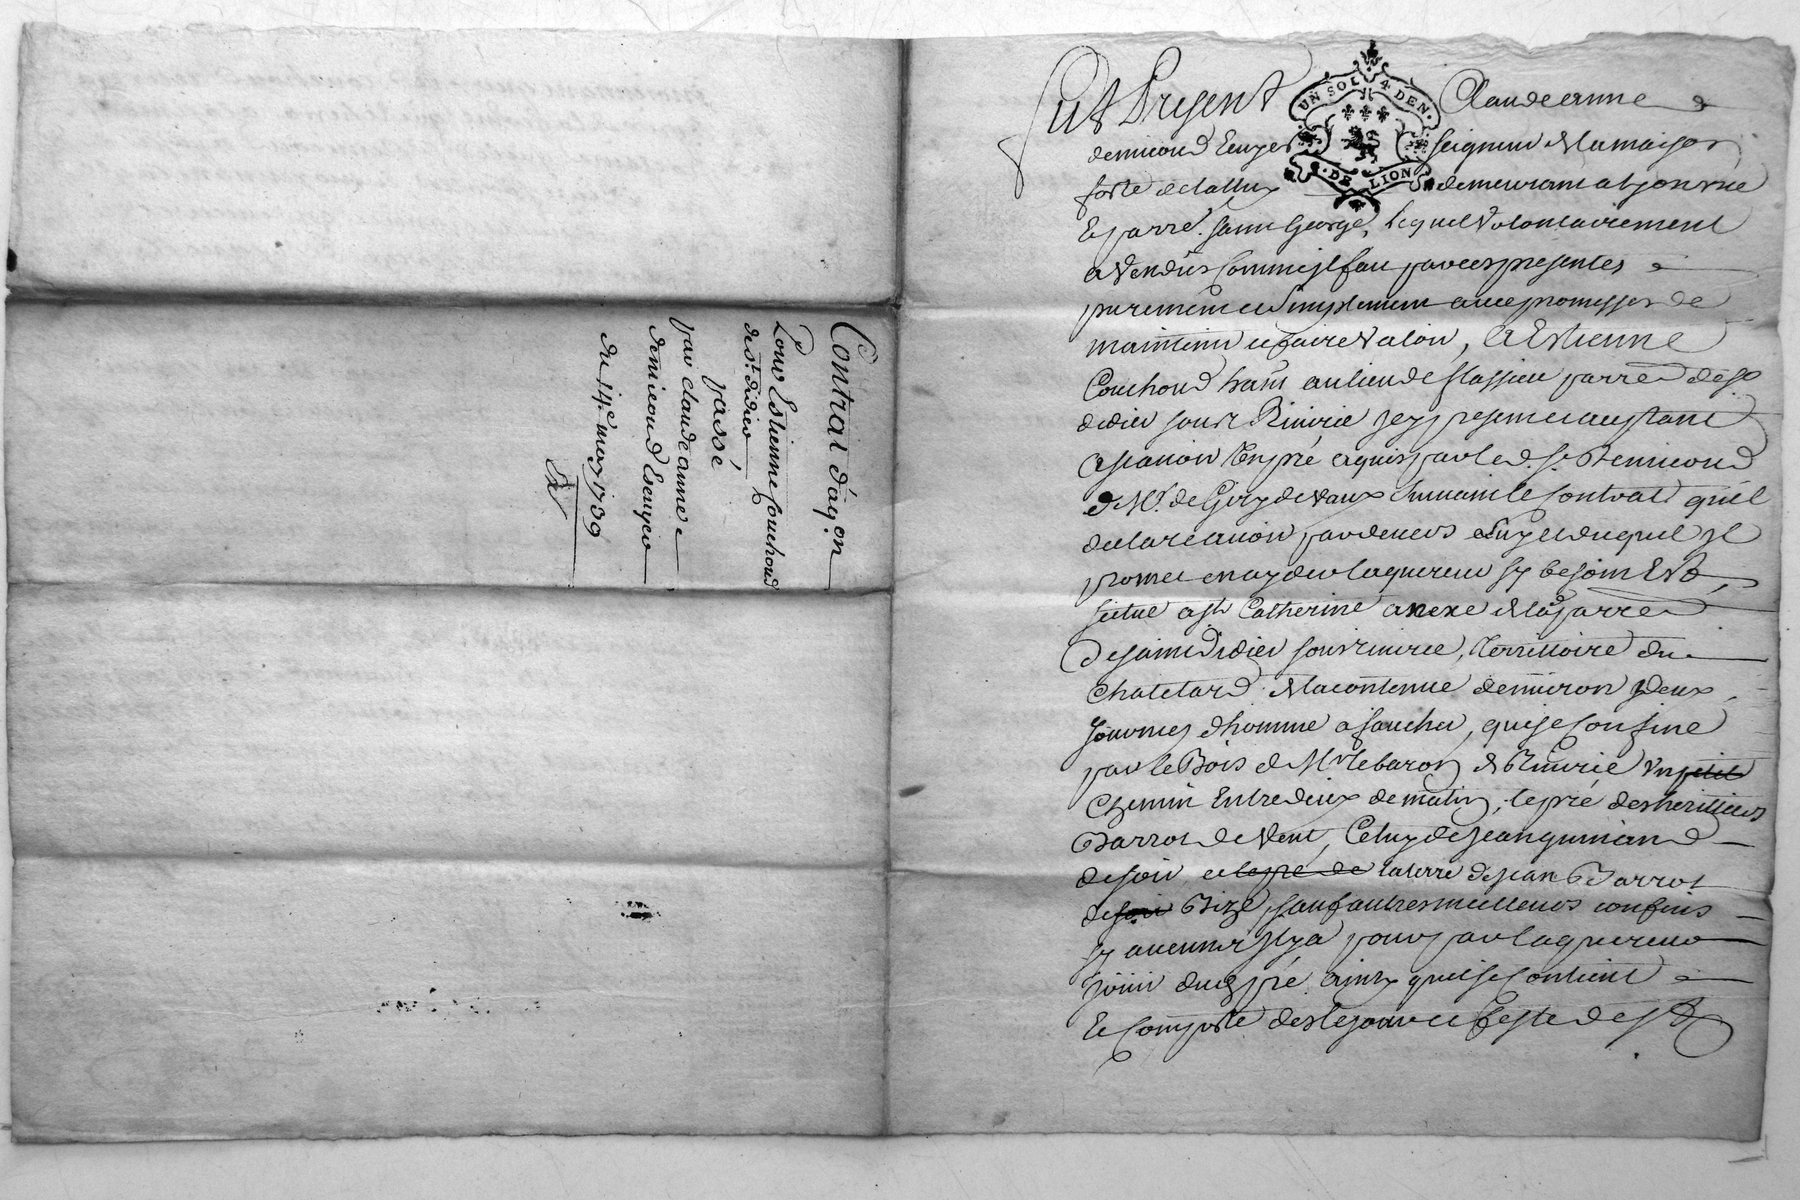 Contrat d'aq.on
Pour Estienne Couchoud
de st. didier
passé
par claude anne
demicoud Escuyer
du 14e may 1739
UN SOL 4 DEN.
DE LION
Fut Present Claude anne
demicoud Ecuyer seigneur de la maison
forte de demeurant a lyon rue
et parre. saint George, lequel volontairement
a vendu comme il fait par ces presentes
purement et simplement avec promesses de
maintenir et faire valoir, a Estienne
Couchoud hant. au lieu de flassieu parre de st
didier sous Riverie icy present et acceptant
asçavoir un pré acquis par led. sr Demicoud
de Mr. de Giry de vaux suivant le contrat qu'il
declare avoir pardevers luy et duquel il
promet en ayder laquereur sy besoin est,
scitué a ste Catherine anexe de la parre
de saint didier sous riverie, territoire du
Chatelard de la contenue denviron deux
journees d'homme a faucher, qui se confine
par le Bois de Mr le baron de Riverie un petit
chemin entre deux de matin, le pré des heritiers
Barrot de vent, Celuy de Jean guinand
de soir et le pré de la terre de jean Barrot
de soir Bize, sauf autres meilleurs confins
sy aucuns il y a pour par laquereur
jouir dud. pré ainsy qu'il se contient
et comporte des le jour et feste de st